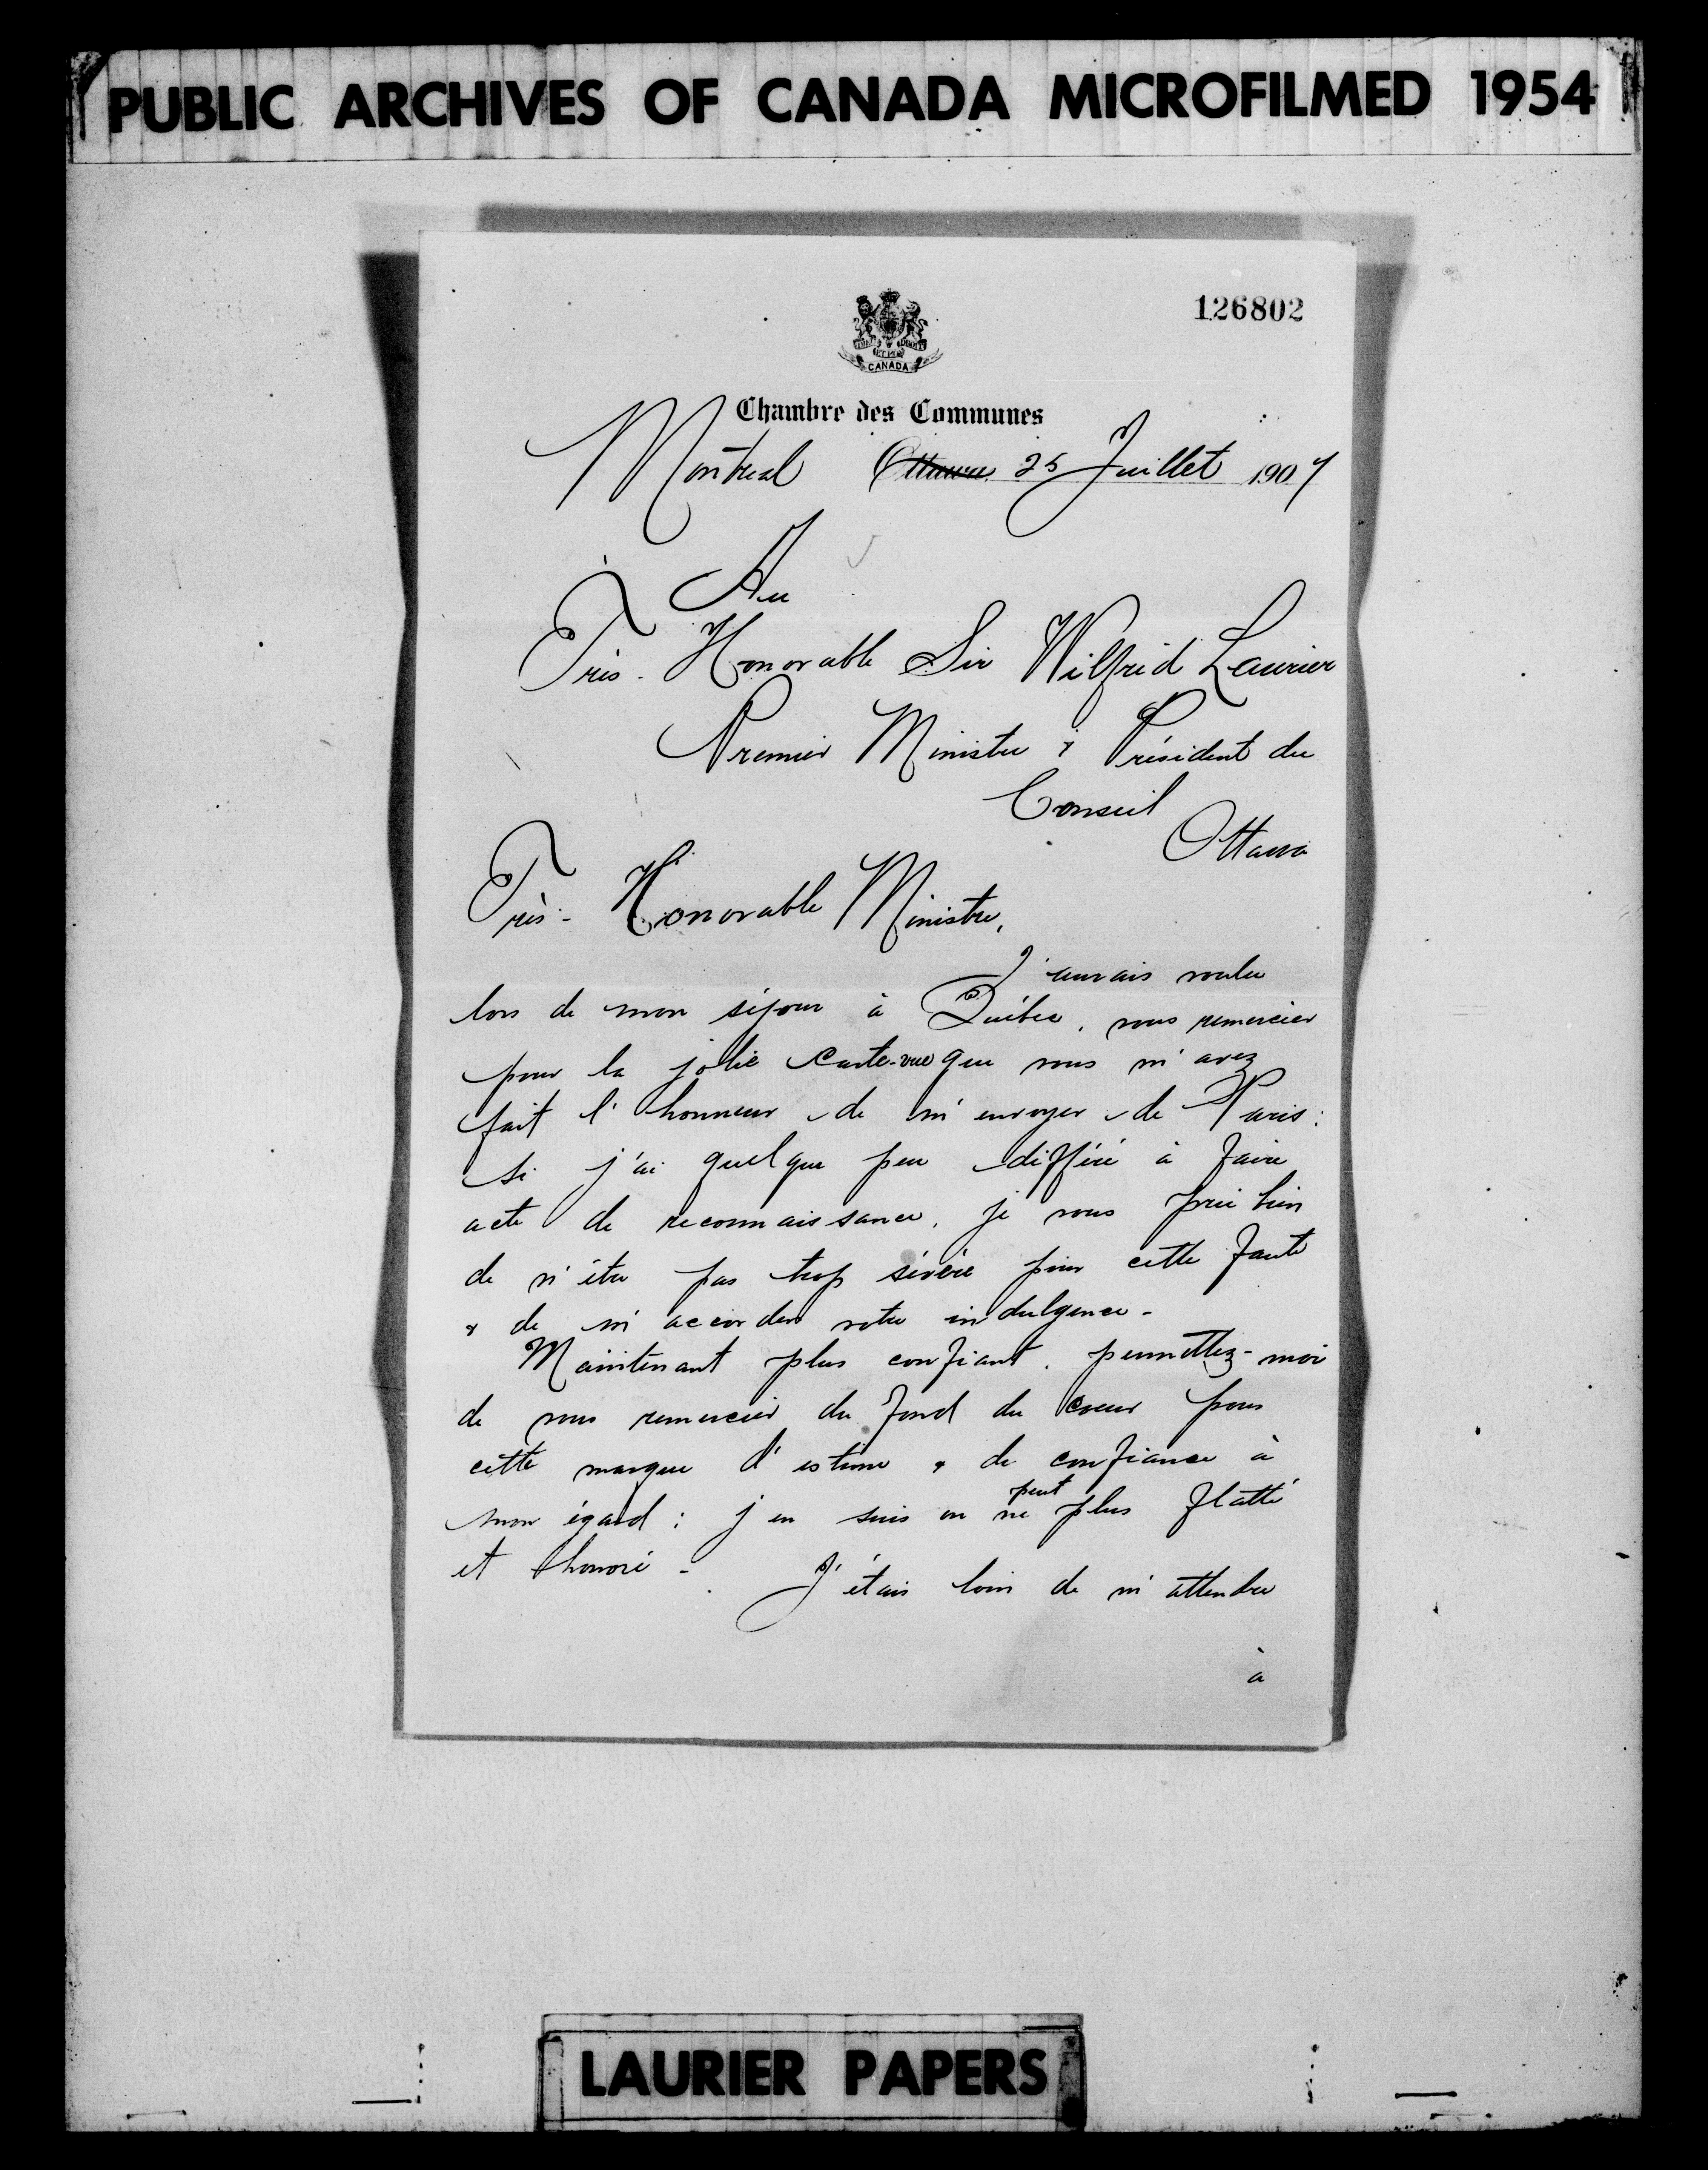 PUBLIC ARCHIVES OF CANADA MICROFILMED 1954
126802
CANADA
Chambre des Communes
Montreal Ottawa 25 Juillet 1907
Au
Très-Honorable Sir Wilfrid Laurier
Premier Ministre & Président du
Conseil
Ottawa
Très-Honorable Ministre,
J'aurais voulu
lors de mon séjour à Québec, vous remercier
pour la jolie carte-vue que vous m'avez
fait l'honneur de m'envoyer de Paris:
si j'ai quelque peu différé à faire
acte de reconnaissance, je vous prie bien
de n'être pas trop sévère pour cette faute
& de m'accorder votre indulgence-
Maintenant plus confiant, permettez-moi
de vous remercier du fond du coeur pour
cette marque d'estime & de confiance à
mon égard: j'en suis on ne peut plus flatté
et honoré-
J'étais loin de m'attendre
à
LAURIER PAPERS